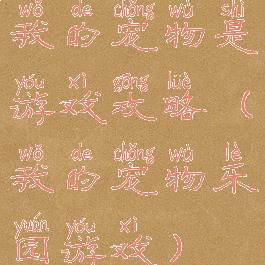 wǒ de chǒng wù shì
我的宠物是
yóu xì gōng lüè
游戏攻略（
wǒ de chǒng wù lè
我的宠物乐
yuán yóu xì
园游戏）